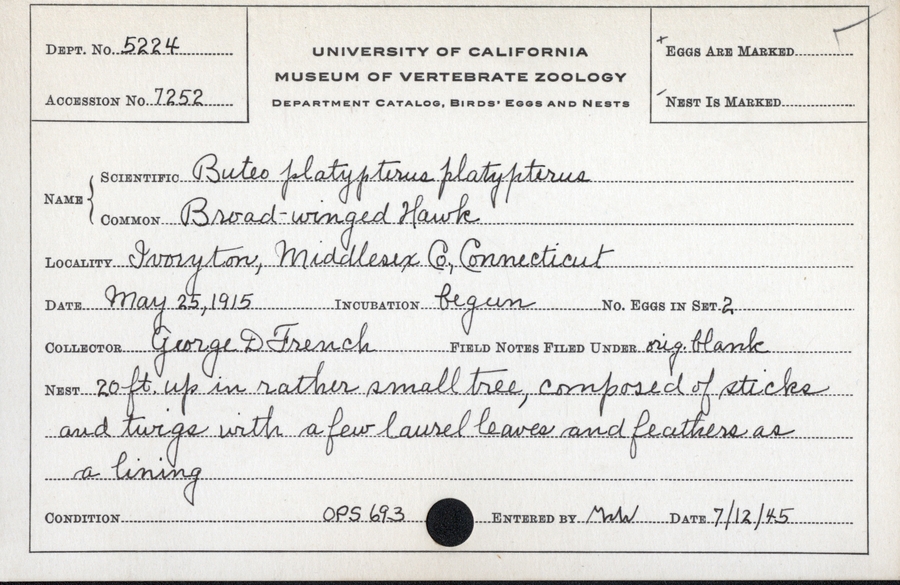 DEPT. NO. 5224
ACCESSION NO. 7252
UNIVERSITY OF CALIFORNIA
MUSEUM OF VERTEBRATE ZOOLOGY
DEPARTMENT CATALOG, BIRDS' EGGS AND NESTS
EGGS ARE MARKED
NEST IS MARKED
NAME
SCIENTIFIC Buteo platypterus platypterus
COMMON Broad-winged Hawk
LOCALITY Ivoryton, Middlesex Co., Connecticut
DATE May 25, 1915 INCUBATION begun NO. EGGS IN SET 2
COLLECTOR George D French FIELD NOTES FILED UNDER orig. blank
NEST 20 ft. up in rather small tree, composed of sticks
and twigs with a few laurel leaves and feathers as
a lining
CONDITION OPS 693 ENTERED BY DATE 7/12/45